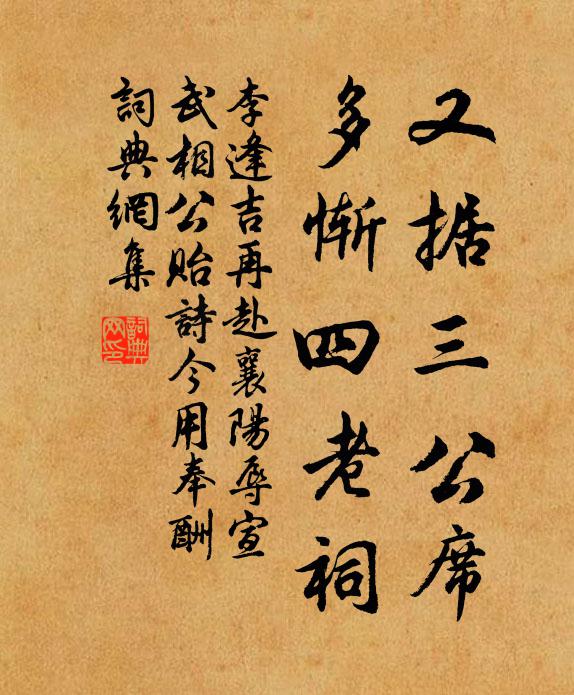 又据三公席
多慚四老祠
李逢吉再赴襄陽辱宣
武相公貽詩今用奉酬
詞典網集
詞典網印